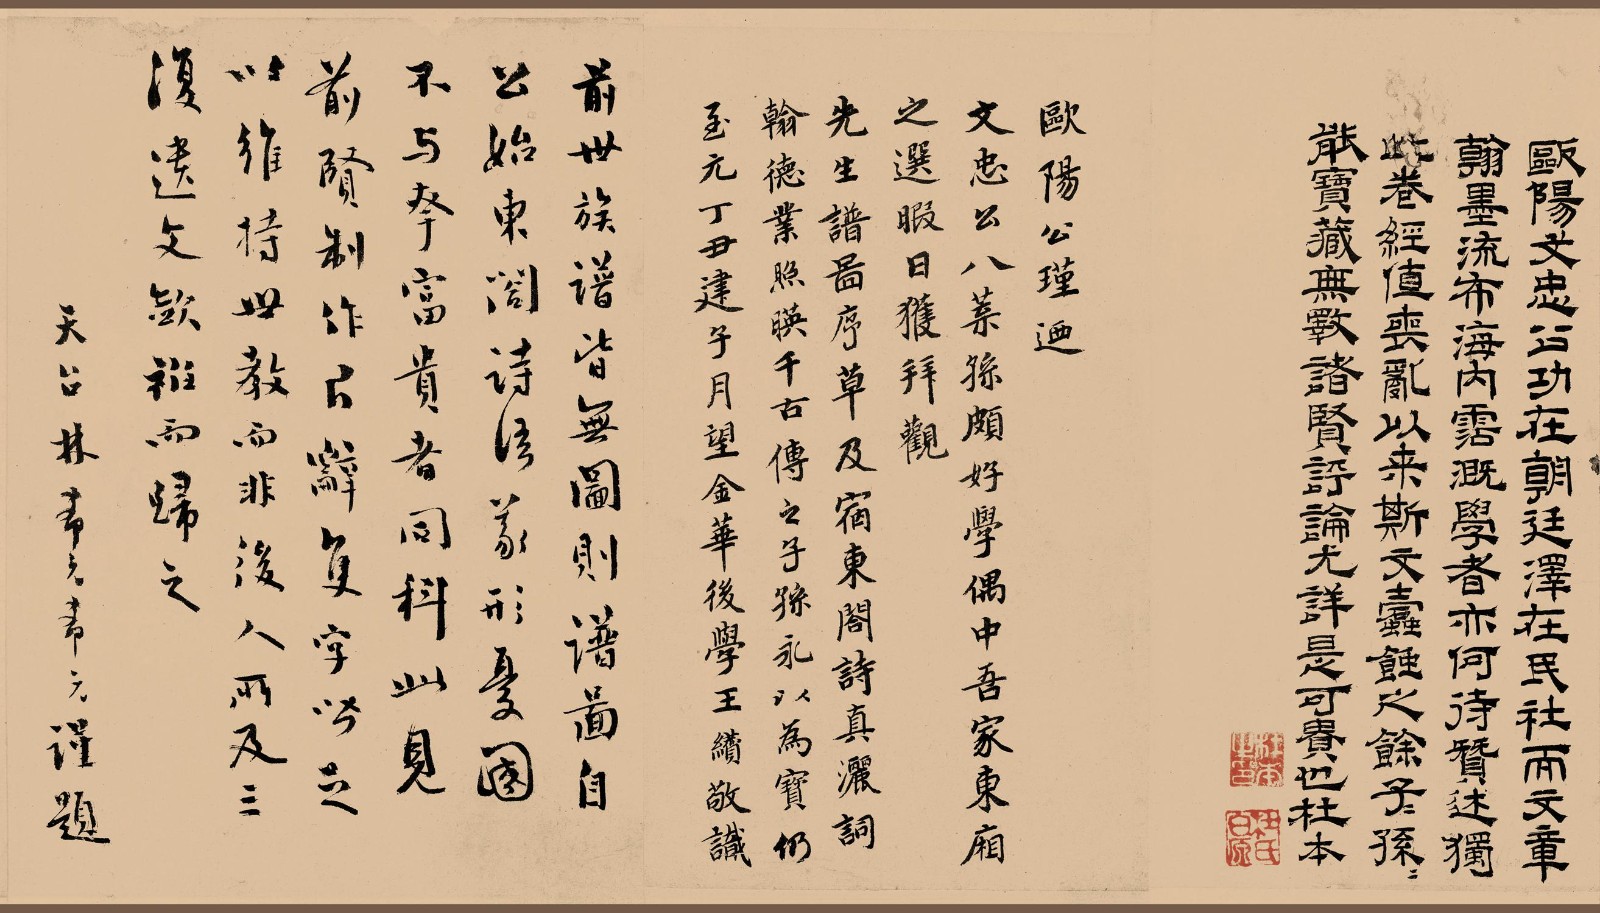 歐陽文忠公功在朝廷澤在民社而文章
翰墨流布海內霑溉學者亦何待贊述獨
此卷經值喪亂以来斯文蠹蝕之餘子〻孫〻
能寶藏無斁諸賢評論尤詳是可貴也杜本
歐陽公瑾迺
文忠公八葉孫頗好學偶中吾家東廂
之選暇日獲拜觀
先生譜啚序草及宿東閣詩真灑詞
翰德業照暎千古傳之子孫永以為寶仍
至元丁丑建子月望金華後學王績敬識
前世族譜皆無圖則譜啚自
公始東閣詩語義形憂國
不与孥富貴者同科此見
前賢制作只辭隻字皆足
以維持世教而非後人所及三
復遺文歛衽而歸之
天台林希元希元謹題